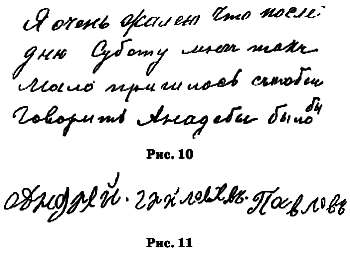 Я очень жалею что после
дню Суботу мнои такъ
мало пришлось стобои
Говорить Анадобы было бы
Рис. 10
Андрей. Павловъ
Рис. 11